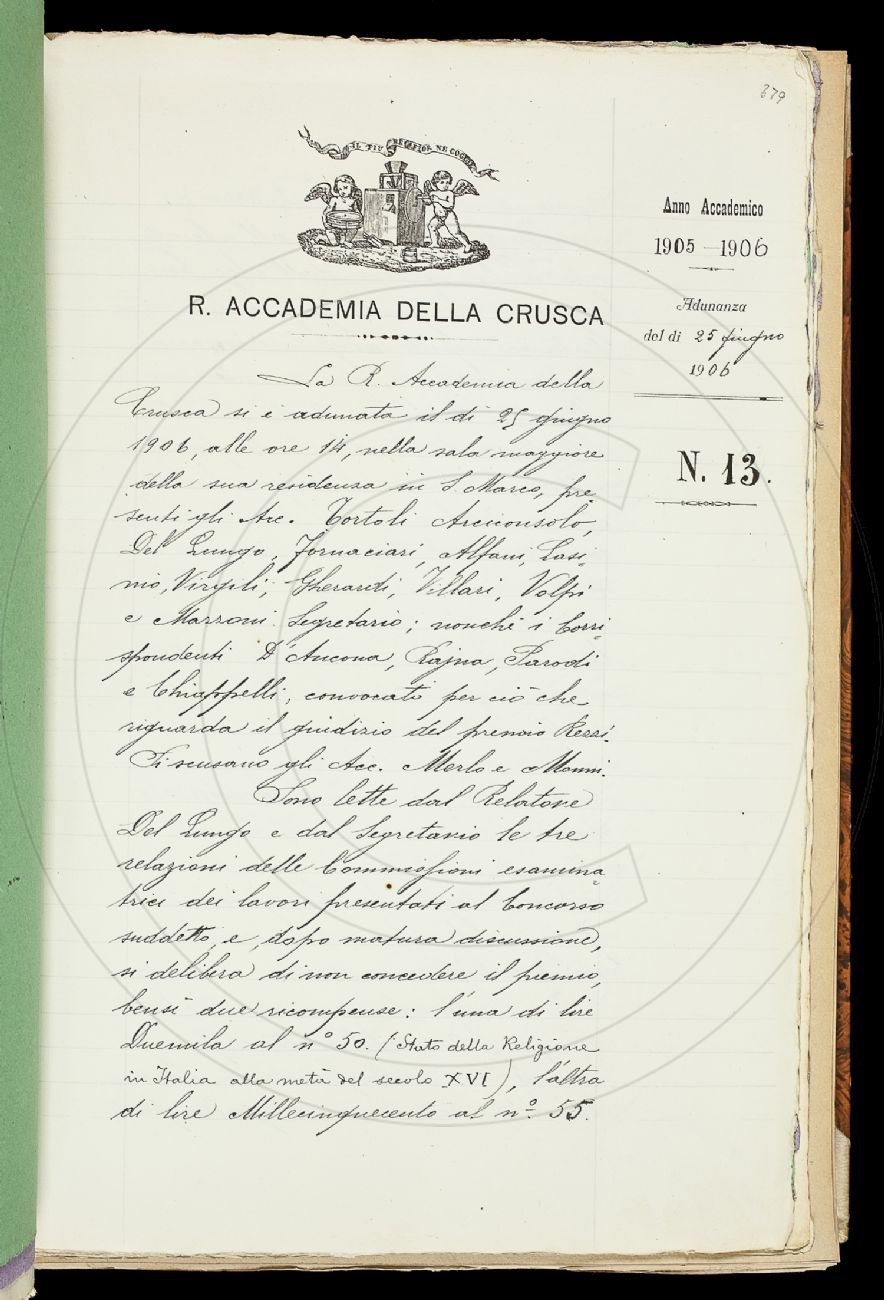 379
IL PIÙ BEL FIOR NE COGLIE
Anno Accademico
1905-1906
Adunanza
del dì 25 giugno
1906
N. 13.
R. ACCADEMIA DELLA CRUSCA
La R. Accademia della
Crusca si è adunata il dì 25 giugno
1906, alle ore 14, nella sala maggiore
della sua residenza in S. Marco, pre-
senti gli Acc. Tortoli Arciconsolo,
Del Lungo, Fornaciari, Alfani, Lasi-
nio, Virgili, Gherardi, Villari, Volpi
e Mazzoni Segretario; nonchè i Corri-
spondenti D'Ancona, Rajna, Parodi
e Chiappelli, convocati per ciò che
riguarda il giudizio del premio Rezzi.
Si scusano gli Acc. Merlo e Monni.
Sono lette dal Relatore
Del Lungo e dal Segretario le tre
relazioni delle Commissioni esamina-
trici dei lavori presentati al Concorso
suddetto, e, dopo matura discussione,
si delibera di non concedere il premio,
bensì due ricompense: l'una di lire
Duemila al n° 50. (Stato della Religione
in Italia alla metà del secolo XVI), l'altra
di lire Millecinquecento al n° 55.